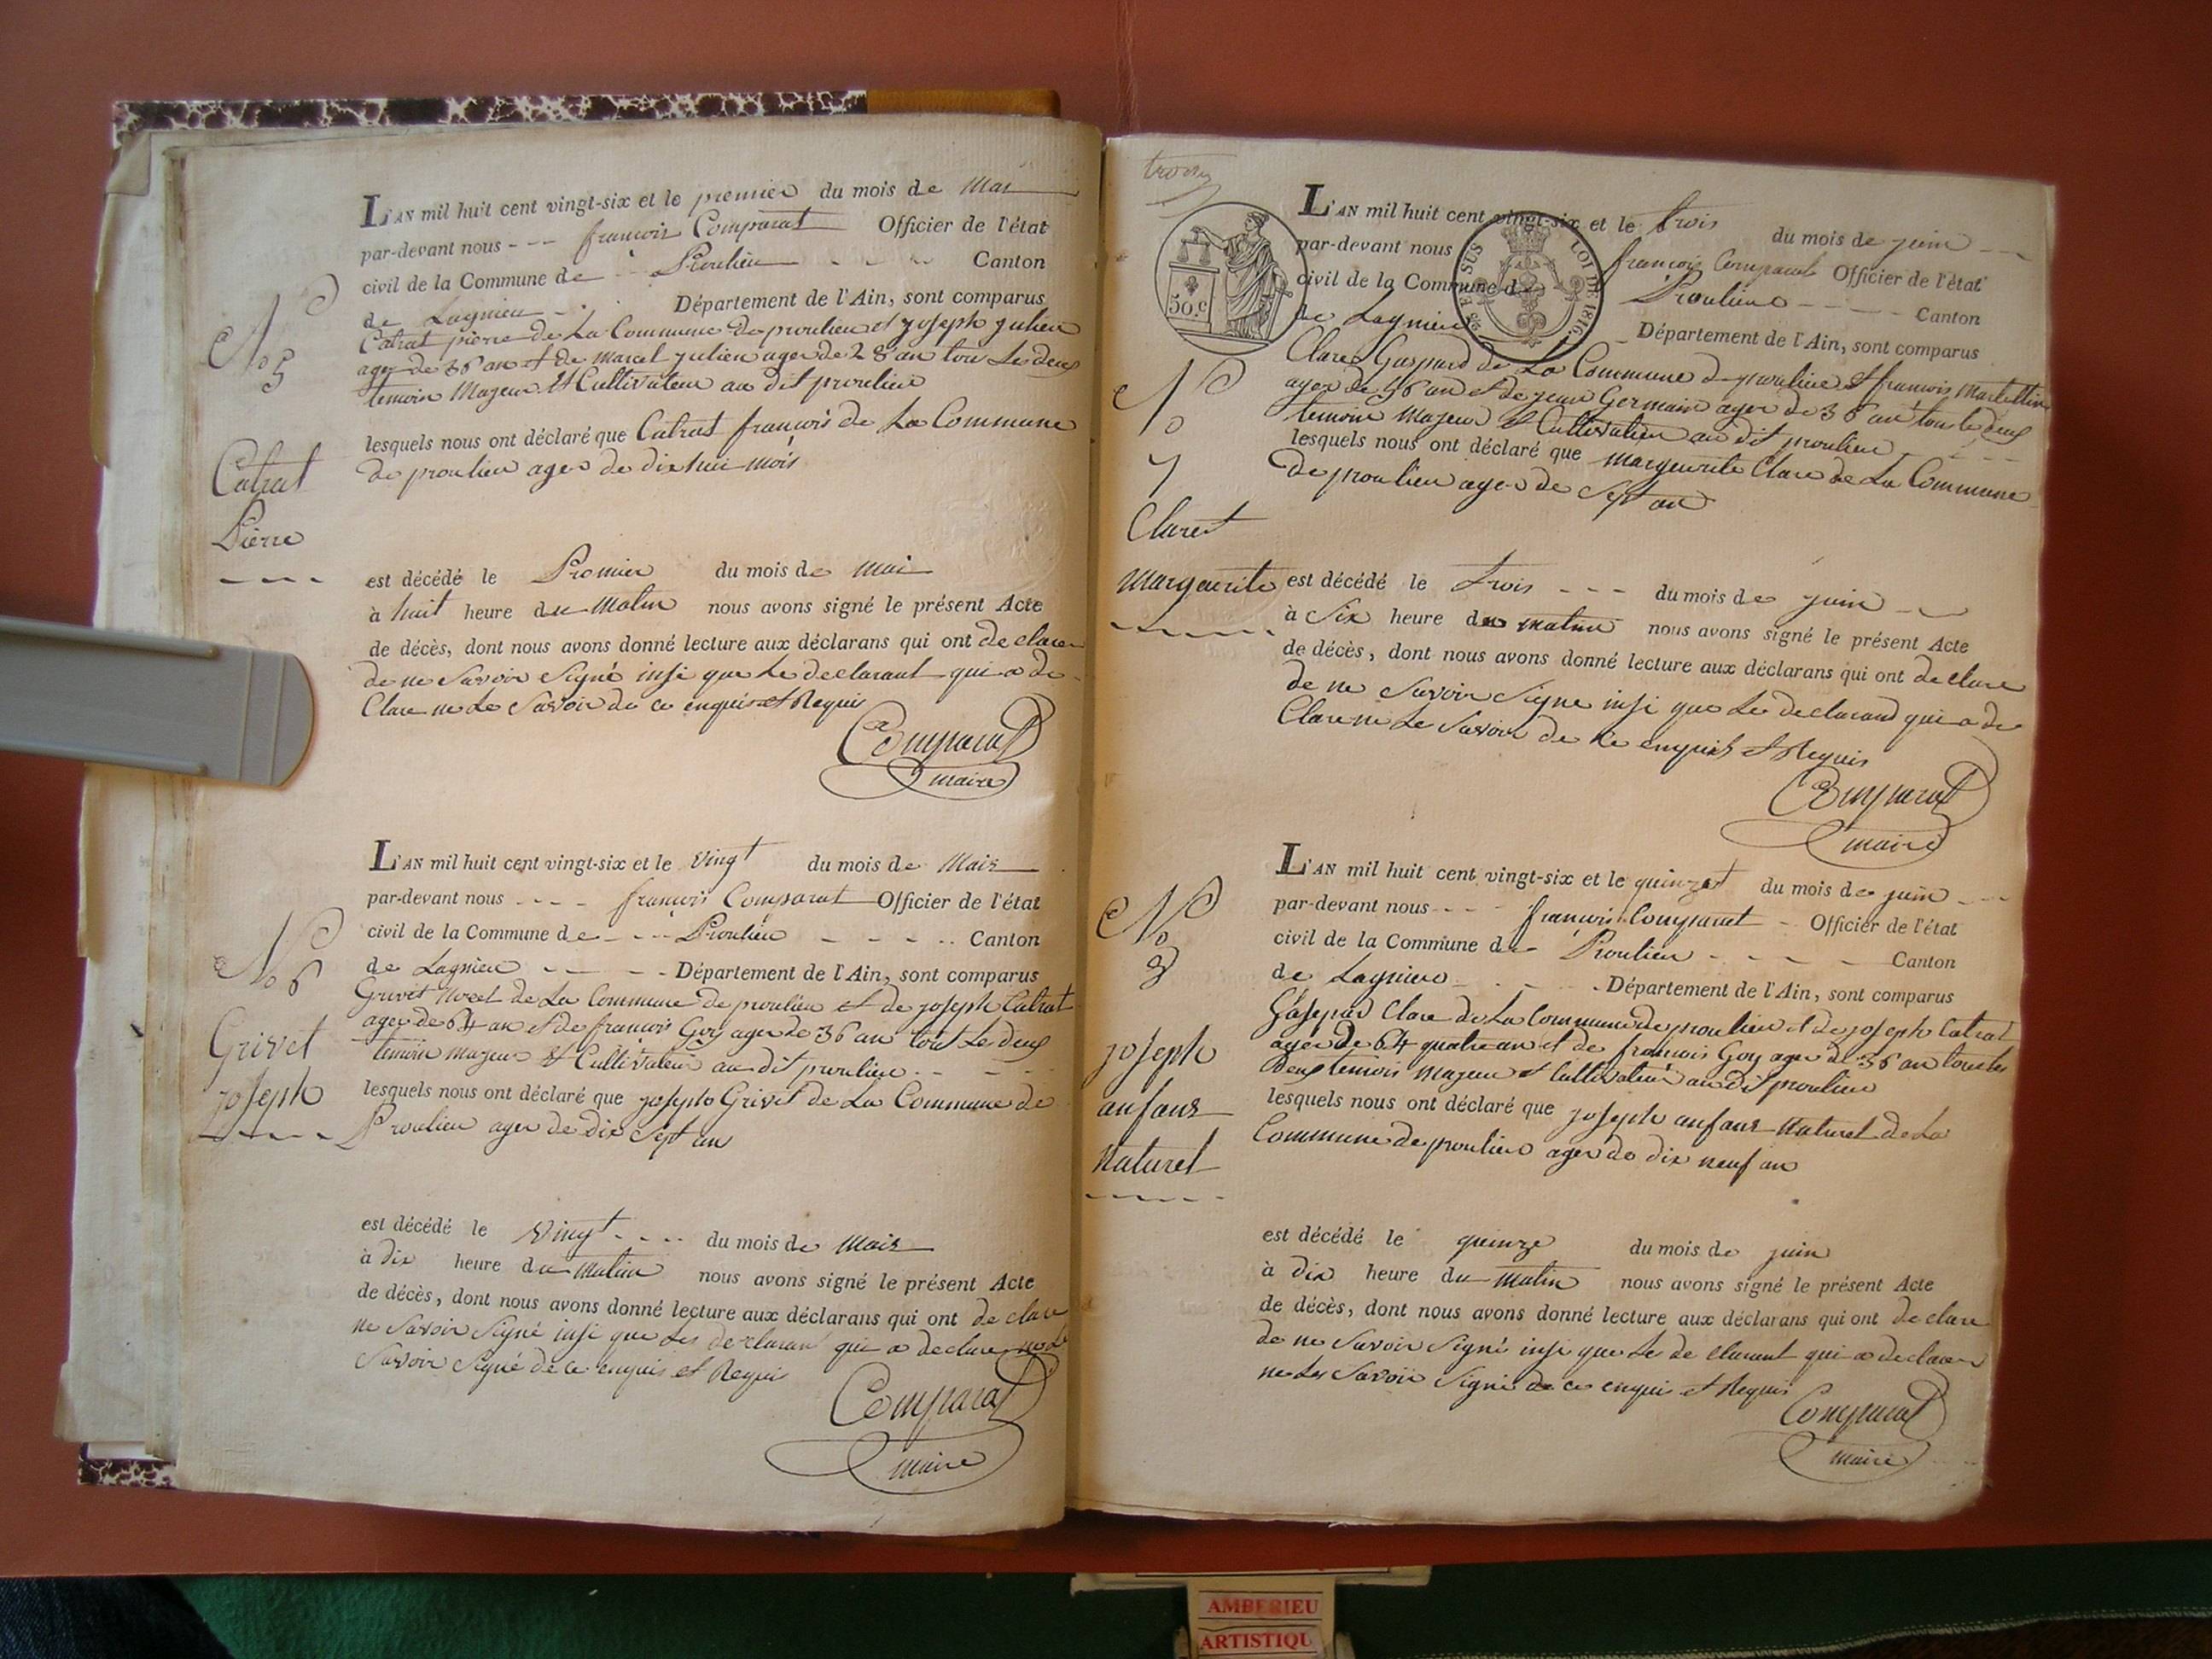 L'AN mil huit cent vingt-six et le premier du mois de Mai
par-devant nous - - - françois Comparat Officier de l'état
civil de la Commune de Proulieu Canton
de Lagnieu Département de l'Ain, sont comparus
Catrat pierre de La Commune de proulieu et joseph julien
ager de 36 an et de Marcel julien ager de 28 an tou Les deux
temoin Majeur et Cultivateur au dit proulieu
lesquels nous ont déclaré que Catrat françois de La Commune
de proulieu ager de dix hui mois
No 5
Catrat
Pierre
est décédé le Premier du mois de Mai
à huit heure du Matin nous avons signé le présent Acte
de décès, dont nous avons donné lecture aux déclarans qui ont declare
de ne Savoir Signé insi que Le declarant qui a de
Clare ne Le Savoir de ce enquis et Requis
Comparat
maire
L'AN mil huit cent vingt-six et le vingt du mois de Mais
par-devant nous - - - - françois Comparat Officier de l'état
civil de la Commune de - - - Proulieu - - - - Canton
de Lagnieu - - - - Département de l'Ain, sont comparus
Grivet de La Commune de proulieu et de joseph Catrat
ager de 64 an et de françois Goy ager de 36 an tout Le deux
temoin majeur et Cultivateur au dit proulieu - - -
lesquels nous ont déclaré que joseph Grivet de La Commune de
Proulieu ager de dix Sept an
No 6
Grivet
joseph
est décédé le vingt - - - - du mois de Mais
à dix heure du Matin nous avons signé le présent Acte
de décès, dont nous avons donné lecture aux déclarans qui ont de clare
ne Savoir Signé insi que Les declaran qui a declare ne Le
Savoir Signé de ce enquis et Requi
Comparat
maire
L'AN mil huit cent vingt-six et le trois du mois de juin - -
par-devant nous françois Comparat Officier de l'état
civil de la Commune de Proulieu - - - Canton
de Lagnieu Département de l'Ain, sont comparus
50.c
EN SUS
LOI DE 1816.
Clare Gaspard de La Commune de proulieu et françois
ager de 56 an et de jean Germain ager de 36 an tou le deux
temoin Majeur et Cultivateur au dit proulieu
lesquels nous ont déclaré que Margeurite Clare de La Commune
de proulieu ager de Sept an
No 7
Claret
Marguerite
est décédé le trois - - - du mois de juin
à Six heure du matin nous avons signé le présent Acte
de décès, dont nous avons donné lecture aux déclarans qui ont declare
de ne Savoir Signe insi que Les declarand qui a de
Clare ne Le Savoir de ce enquis et Requis
Comparat
maire
L'AN mil huit cent vingt-six et le quinze du mois de juin - - -
par-devant nous - - - françois Comparat - Officier de l'état
civil de la Commune de Proulieu - - - - Canton
de Lagnieu - - - Département de l'Ain, sont comparus
Gaspar Clare de La Commune de proulieu et de joseph Catrat
ager de 64 quatre an et de francois Goy ager de 36 an tou les
Deux temois Majeur et Cultivateur au dit proulieu
lesquels nous ont déclaré que joseph anfant Naturel de La
Commune de proulieu ager de dix neuf an
No 8
joseph
anfant
Naturel
est décédé le quinze du mois de juin
à dix heure du matin nous avons signé le présent Acte
de décès, dont nous avons donné lecture aux déclarans qui ont declare
de ne Savoir Signé insi que Le de clarent qui a declare
ne Les Savoir Signé de ce enqui et Requis
Comparat
maire
AMBERIEU
ARTISTIQU